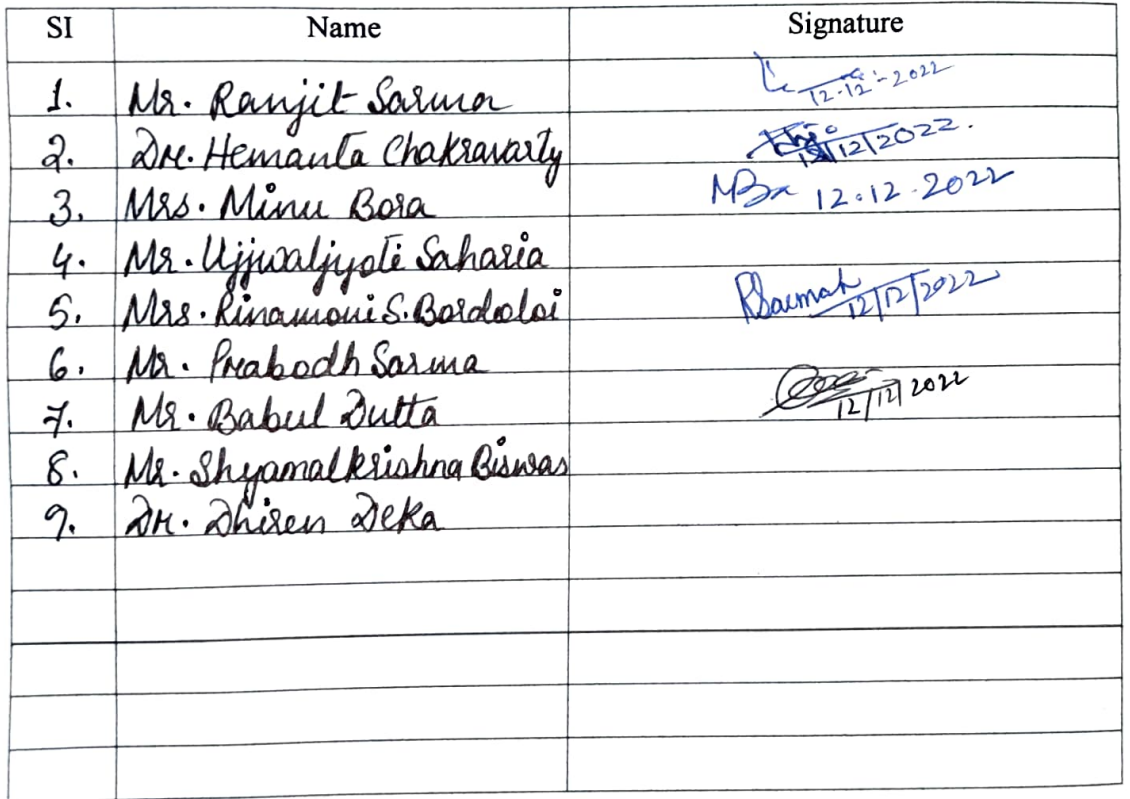 SI Name Signature
1. Mr. Ranjit Sarma 12-12-2022
2. Dr. Hemanta Chakravarty 12/12/2022.
3. Mrs. Minu Bora MBa 12.12.2022
4. Mr. Ujjwaljyoti Saharia
5. Mrs. Rinamoni S. Bordoloi RSarmah 12/12/2022
6. Mr. Prabodh Sarma
7. Mr. Babul Dutta 12/12/2022
8. Mr. Shyamal krishna Biswas
9. Dr. Dhiren Deka